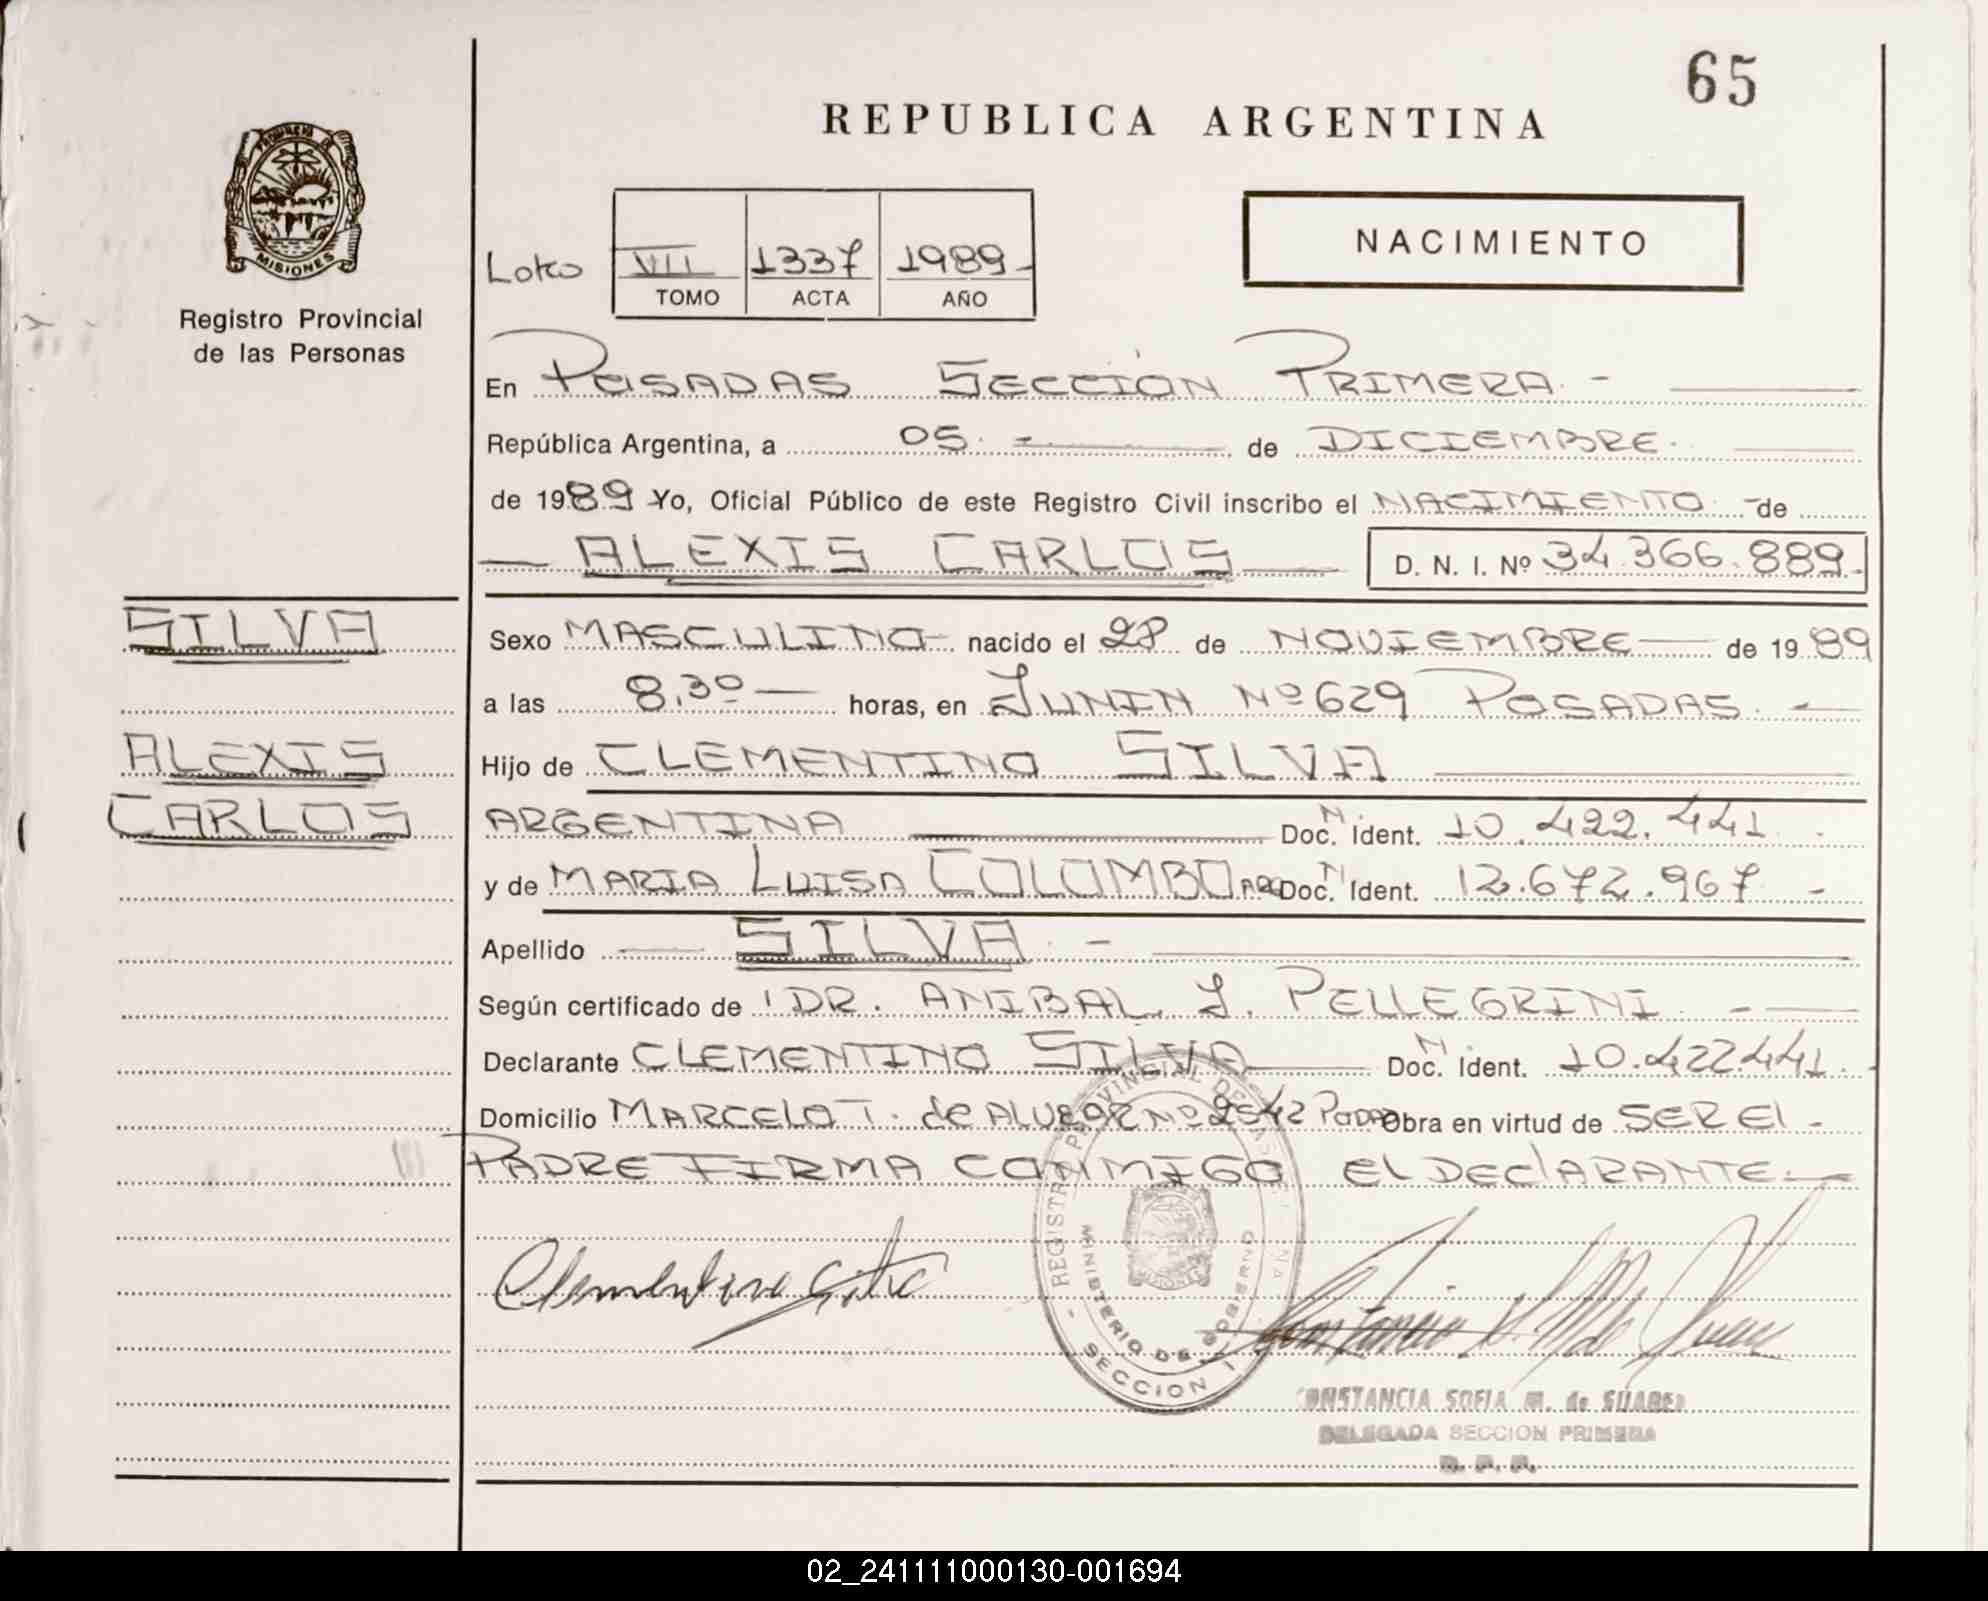 65
REPUBLICA ARGENTINA
PROVINCIA DE
MISIONES
Registro Provincial
de las Personas
NACIMIENTO
VII 1337 1989
TOMO ACTA AÑO
En POSADAS SECCION PRIMERA.-
República Argentina, a 05.- de DICIEMBRE.
de 1989 Yo, Oficial Público de este Registro Civil inscribo el NACIMIENTO - de
ALEXIS CARLOS D. N. I. Nº 34.366.889.
SILVA
ALEXIS
CARLOS
Sexo MASCULINO nacido el 28 de NOVIEMBRE de 1989
a las 8,30 horas, en JUNIN Nº 629 POSADAS.-
Hijo de CLEMENTINO SILVA
ARGENTINA Doc. N. Ident. 10.422.441.
y de MARIA LUISA COLOMBO ARG Doc. N. Ident. 12.672.967 -
Apellido SILVA.-
Según certificado de DR. ANIBAL J. PELLEGRINI.-
Declarante CLEMENTINO SILVA Doc. N. Ident. 10.422.441.
Domicilio MARCELO T. de ALVEAR Nº 2542 Obra en virtud de SER El
PADRE FIRMA CONMIGO EL DEClARANTE.-
Clementino Silva
REGISTRO PROVINCIAL DE LAS PERSONAS
MINISTERIO DE GOBIERNO
SECCION I
CONSTANCIA SOFIA M. de SUAREZ
DELEGADA SECCION PRIMERA
R. P. P.
02_241111000130-001694